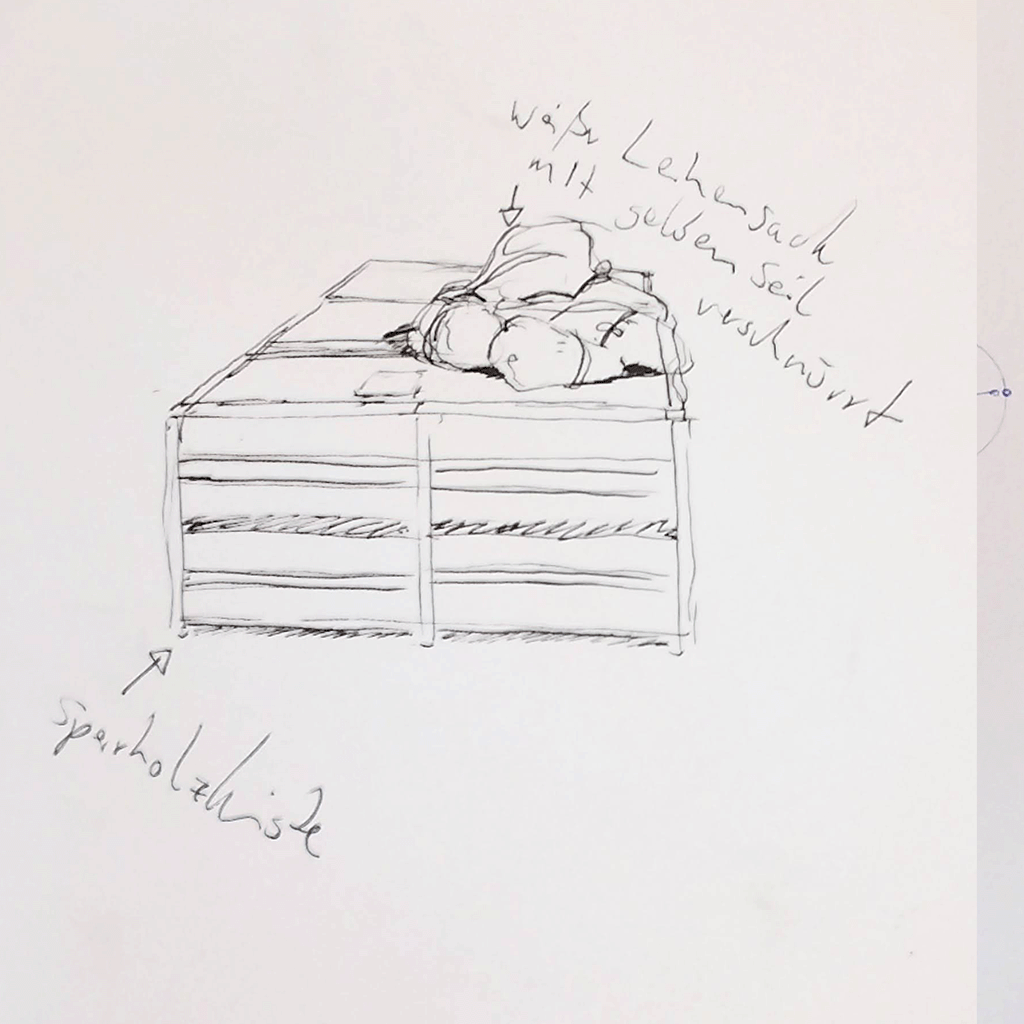 weißr Leinensack
mit gelben Seil
verschnürrt
Sperrholzkiste